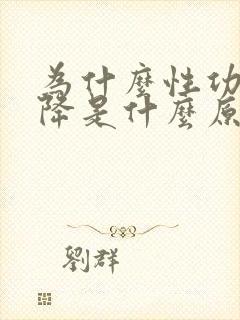 為什麼性功
降是什麼原
劉群